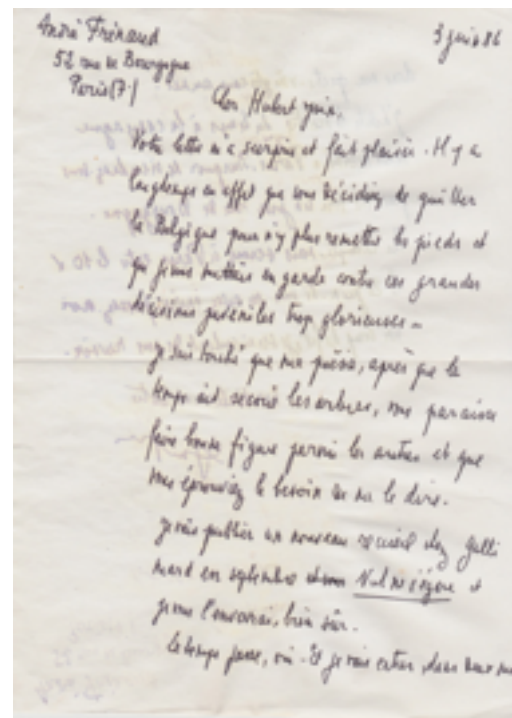 André Frénaud
3 juin 86
52 rue de Bourgogne
Paris (7)
Cher Hubert Juin,
Votre lettre m'a surpris et fait plaisir. Il y a
longtemps en effet que vous décidiez de quitter
la Belgique pour n'y plus remettre les pieds et
que je vous mettais en garde contre ces grandes
décisions juvéniles trop glorieuses –
Je suis touché que ma poésie, après que le
temps ait secoué les arbres, vous paraisse
faire bonne figure parmi les autres et que
vous éprouviez le besoin de me le dire.
Je vais publier un nouveau recueil chez Galli
mard en septembre Nul ne s'égare et
je vous l'enverrai, bien sûr.
Le temps passe, oui. Et je vais entrer, dans